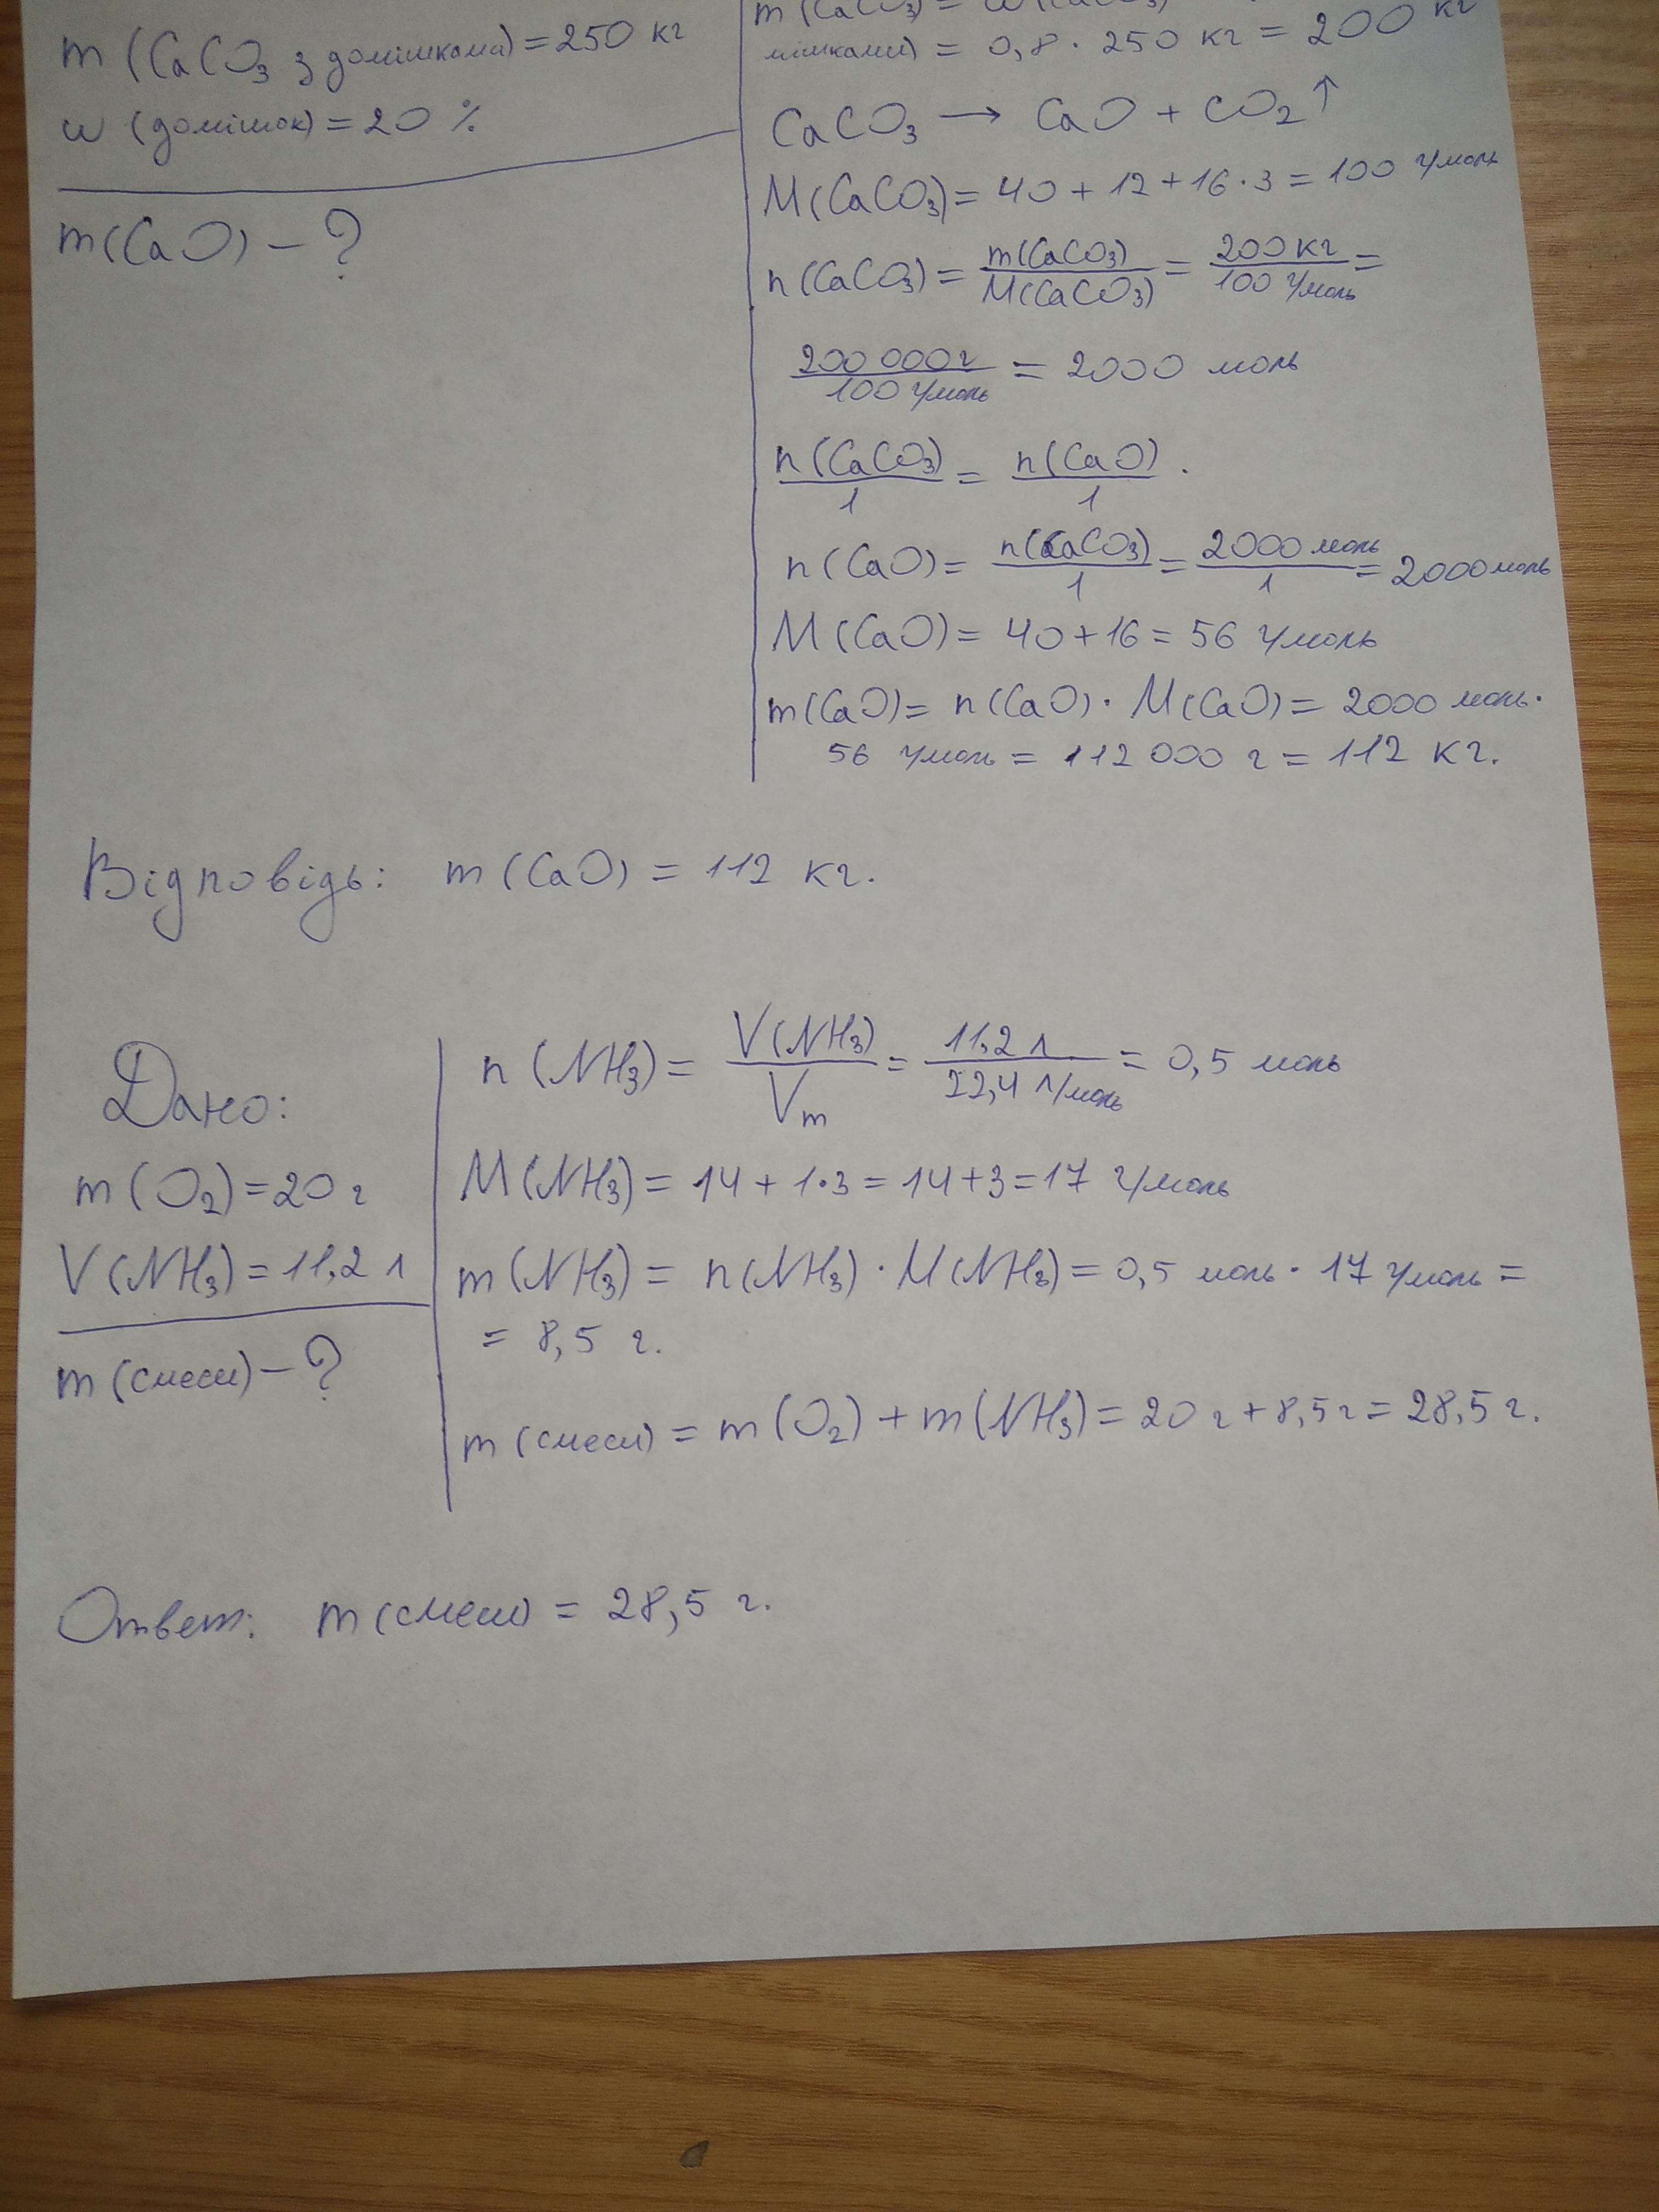 m (CaCO₃ з домішками) = 250 кг
w (домішок) = 20 %
m(CaO) – ?
m (CaCO₃) = w (CaCO₃)
мішками) = 0,8 · 250 кг = 200 кг
CaCO₃ → CaO + CO₂↑
M(CaCO₃) = 40 + 12 + 16 · 3 = 100 г/моль
n(CaCO₃) = m(CaCO₃)/M(CaCO₃) = 200 кг/100 г/моль =
200 000 г/100 г/моль = 2000 моль
n(CaCO₃)/1 = n(CaO)/1 .
n(CaO) = n(CaCO₃)/1 = 2000 моль/1 = 2000 моль
M(CaO) = 40 + 16 = 56 г/моль
m(CaO) = n(CaO) · M(CaO) = 2000 моль ·
56 г/моль = 112 000 г = 112 кг.
Відповідь: m (CaO) = 112 кг.
Дано:
m (O₂) = 20 г
V (NH₃) = 11,2 л
m (смеси) – ?
n (NH₃) = V(NH₃)/Vm = 11,2 л/22,4 л/моль = 0,5 моль
M (NH₃) = 14 + 1·3 = 14 + 3 = 17 г/моль
m (NH₃) = n(NH₃) · M(NH₃) = 0,5 моль · 17 г/моль =
= 8,5 г.
m (смеси) = m(O₂) + m(NH₃) = 20 г + 8,5 г = 28,5 г.
Ответ: m (смеси) = 28,5 г.